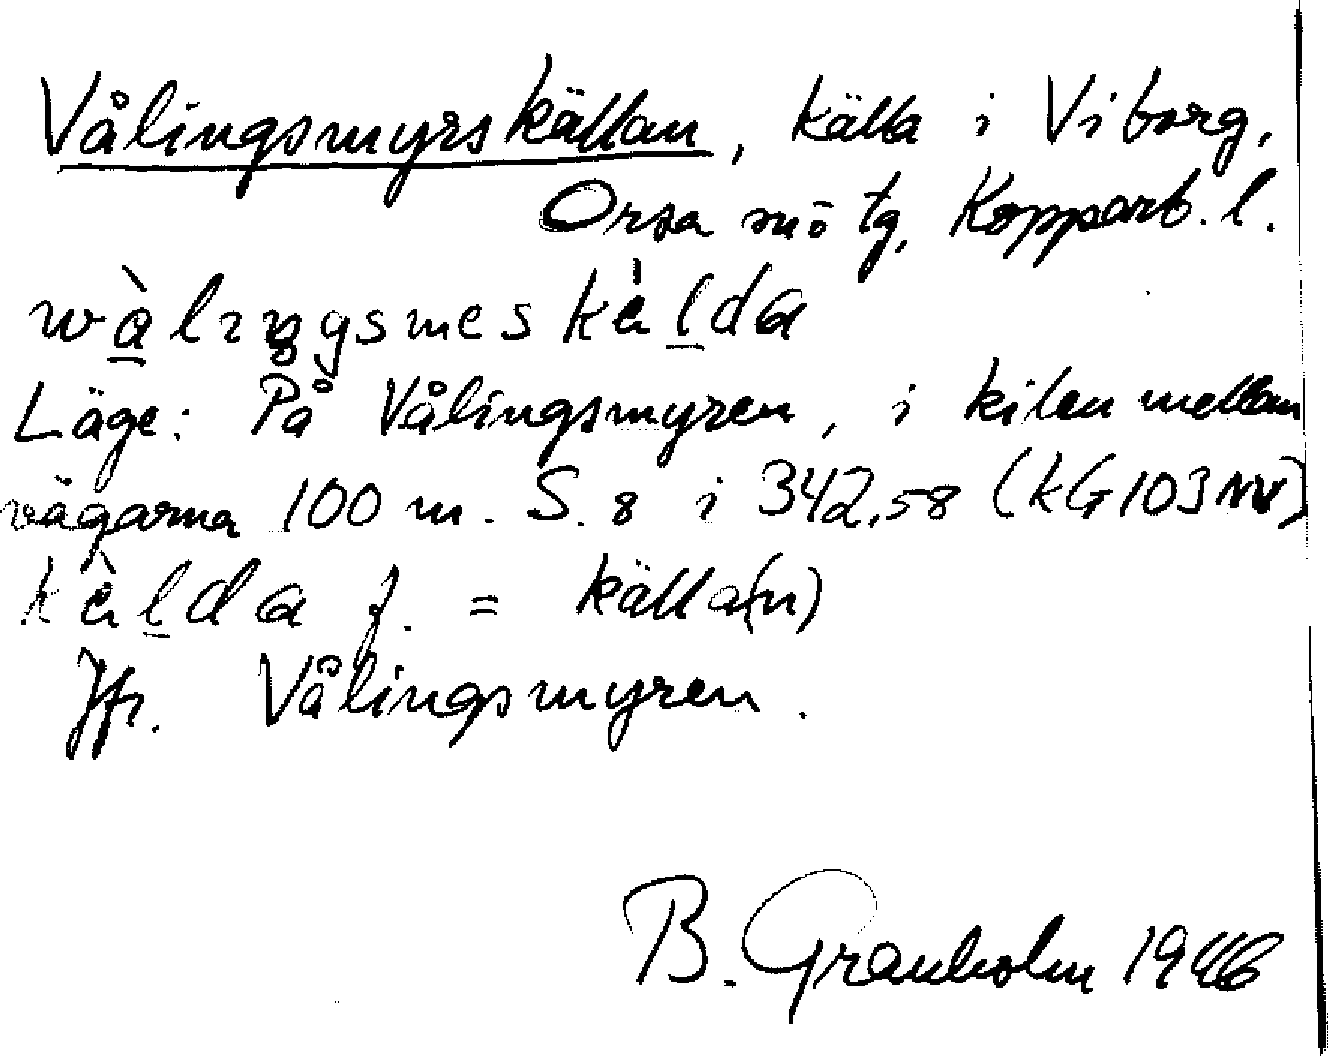 Vålingsmyrskällan, källa i Viborg,
Orsa sn o tg, Kopparb. l.
wàlıŋgsmeskèlda
Läge: På Vålingsmyren, i kilen mellan
vägarna 100 m. S. 8 i 342,58 (kG103NV)
kèlda f. = källa(n)
Jfr. Vålingsmyren.
B. Granholm 1946